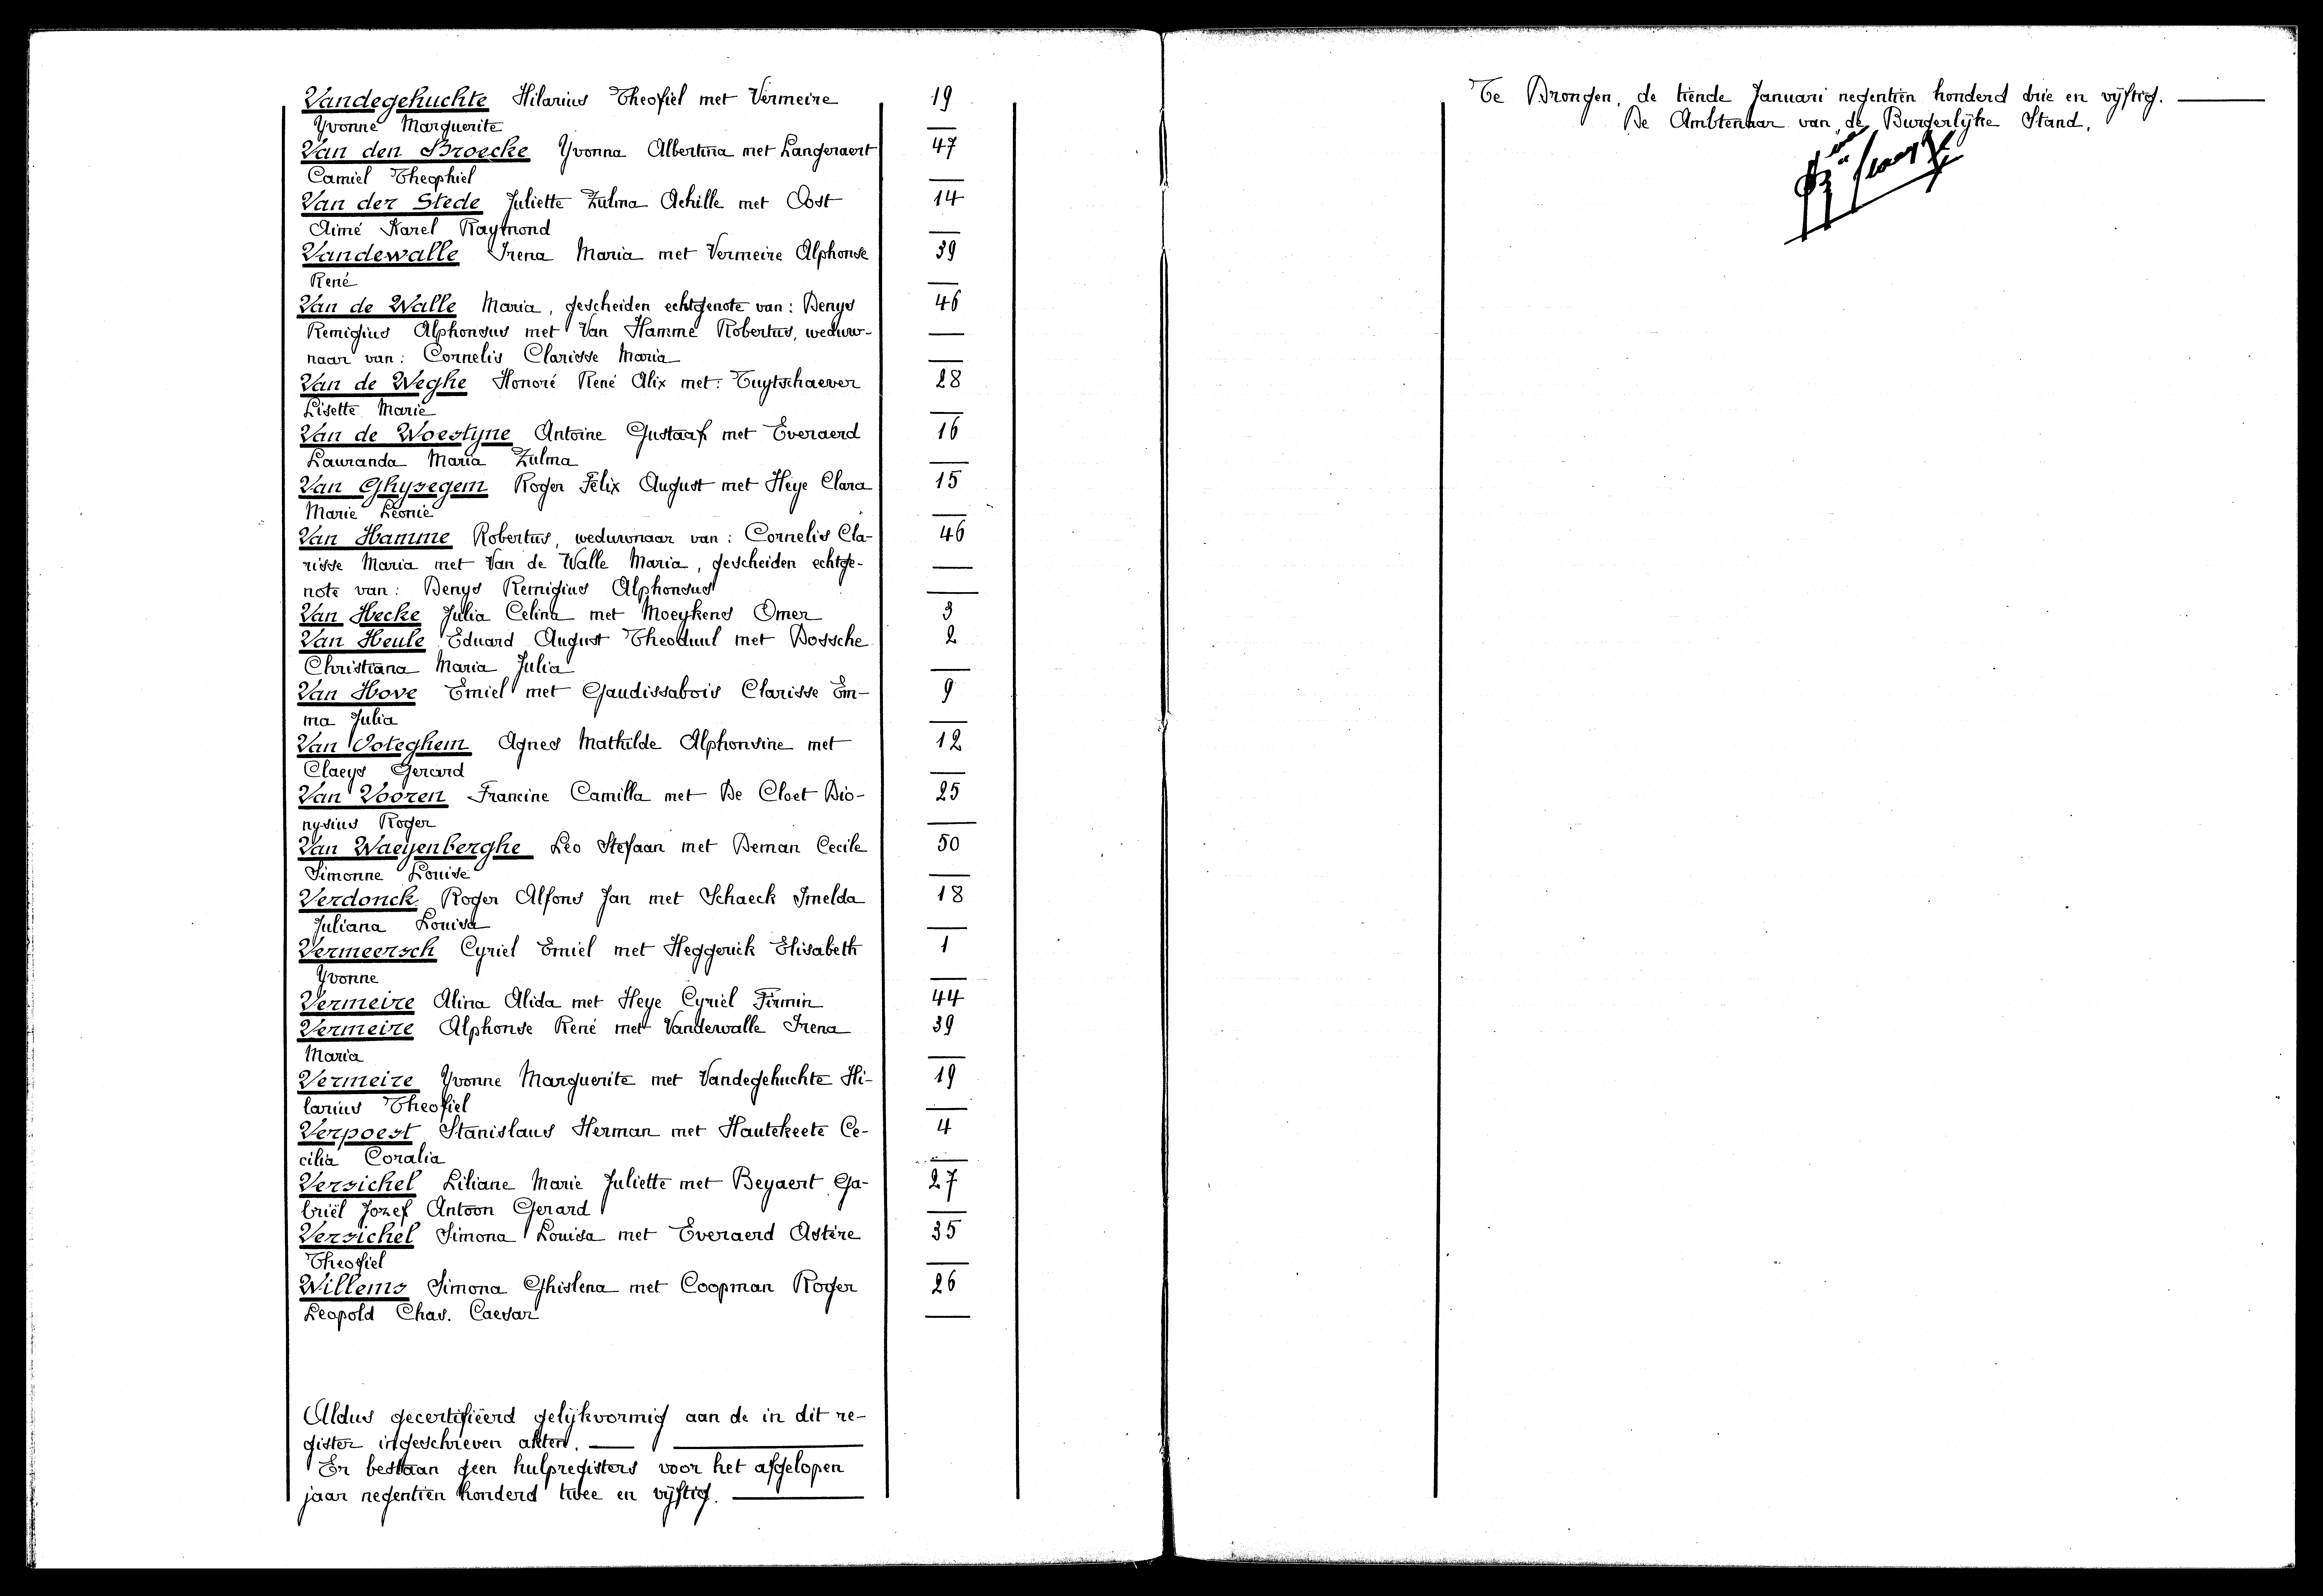 Vandegehuchte Hilarius Theofiel met Vermeire 19
Yvonne Marguerite
Van den Broecke Yvonna Albertina met Langeraert 47
Camiel Theophiel
Van der Stede Juliette Zulma Achille met Oost 14
Aimé Karel Raymond
Vandewalle Irena Maria met Vermeire Alphonse 39
René
Van de Walle Maria, gescheiden echtgenote van: Denys 46
Remigius Alphonsus met Van Hamme Robertus, weduw-
naar van: Cornelis Clarisse Maria
Van de Weghe Honoré René Alix met: Tuytschaever 28
Lisette Marie
Van de Woestyne Antoine Gustaaf met Everaerd 16
Lauranda Maria Zulma
Van Ghysegem Roger Félix August met Heye Clara 15
Marie Léonie
Van Hamme Robertus, weduwnaar van: Cornelis Cla- 46
risse Maria met Van de Walle Maria, gescheiden echtge-
note van: Denys Remigius Alphonsus
Van Hecke Julia Celina met Moeykens Omer 3
Van Heule Eduard August Theoduul met Bossche 2
Christiana Maria Julia
Van Hove Emiel met Gaudissabois Clarisse Em- 9
ma Julia
Van Ooteghem Agnes Mathilde Alphonsine met 12
Claeys Gerard
Van Vooren Francine Camilla met De Cloet Dio- 25
nysius Roger
Van Waeyenberghe Leo Stefaan met Deman Cecile 50
Simonne Louise
Verdonck Roger Alfons Jan met Schaeck Imelda 18
Juliana Louisa
Vermeersch Cyriel Emiel met Heggerick Elisabeth 1
Yvonne
Vermeire Alina Alida met Heye Cyriel Firmin 44
Vermeire Alphonse René met Vandewalle Irena 39
Maria
Vermeire Yvonne Marguerite met Vandegehuchte Hi- 19
larius Theofiel
Verpoest Stanislaus Herman met Hautekeete Ce- 4
cilia Coralia
Versichel Liliane Marie Juliette met Beyaert Ga- 27
briël Jozef Antoon Gerard
Versichel Simona Louisa met Everaerd Astère 35
Theofiel
Willems Simona Ghislena met Coopman Roger 26
Leopold Chas. Caesar
Aldus gecertifiëerd gelijkvormig aan de in dit re-
gister ingeschreven akten.
Er bestaan geen hulpregisters voor het afgelopen
jaar negentien honderd twee en vijftig.
Te Drongen, de tiende Januari negentien honderd drie en vijftig.
De Ambtenaar van de Burgerlijke Stand,